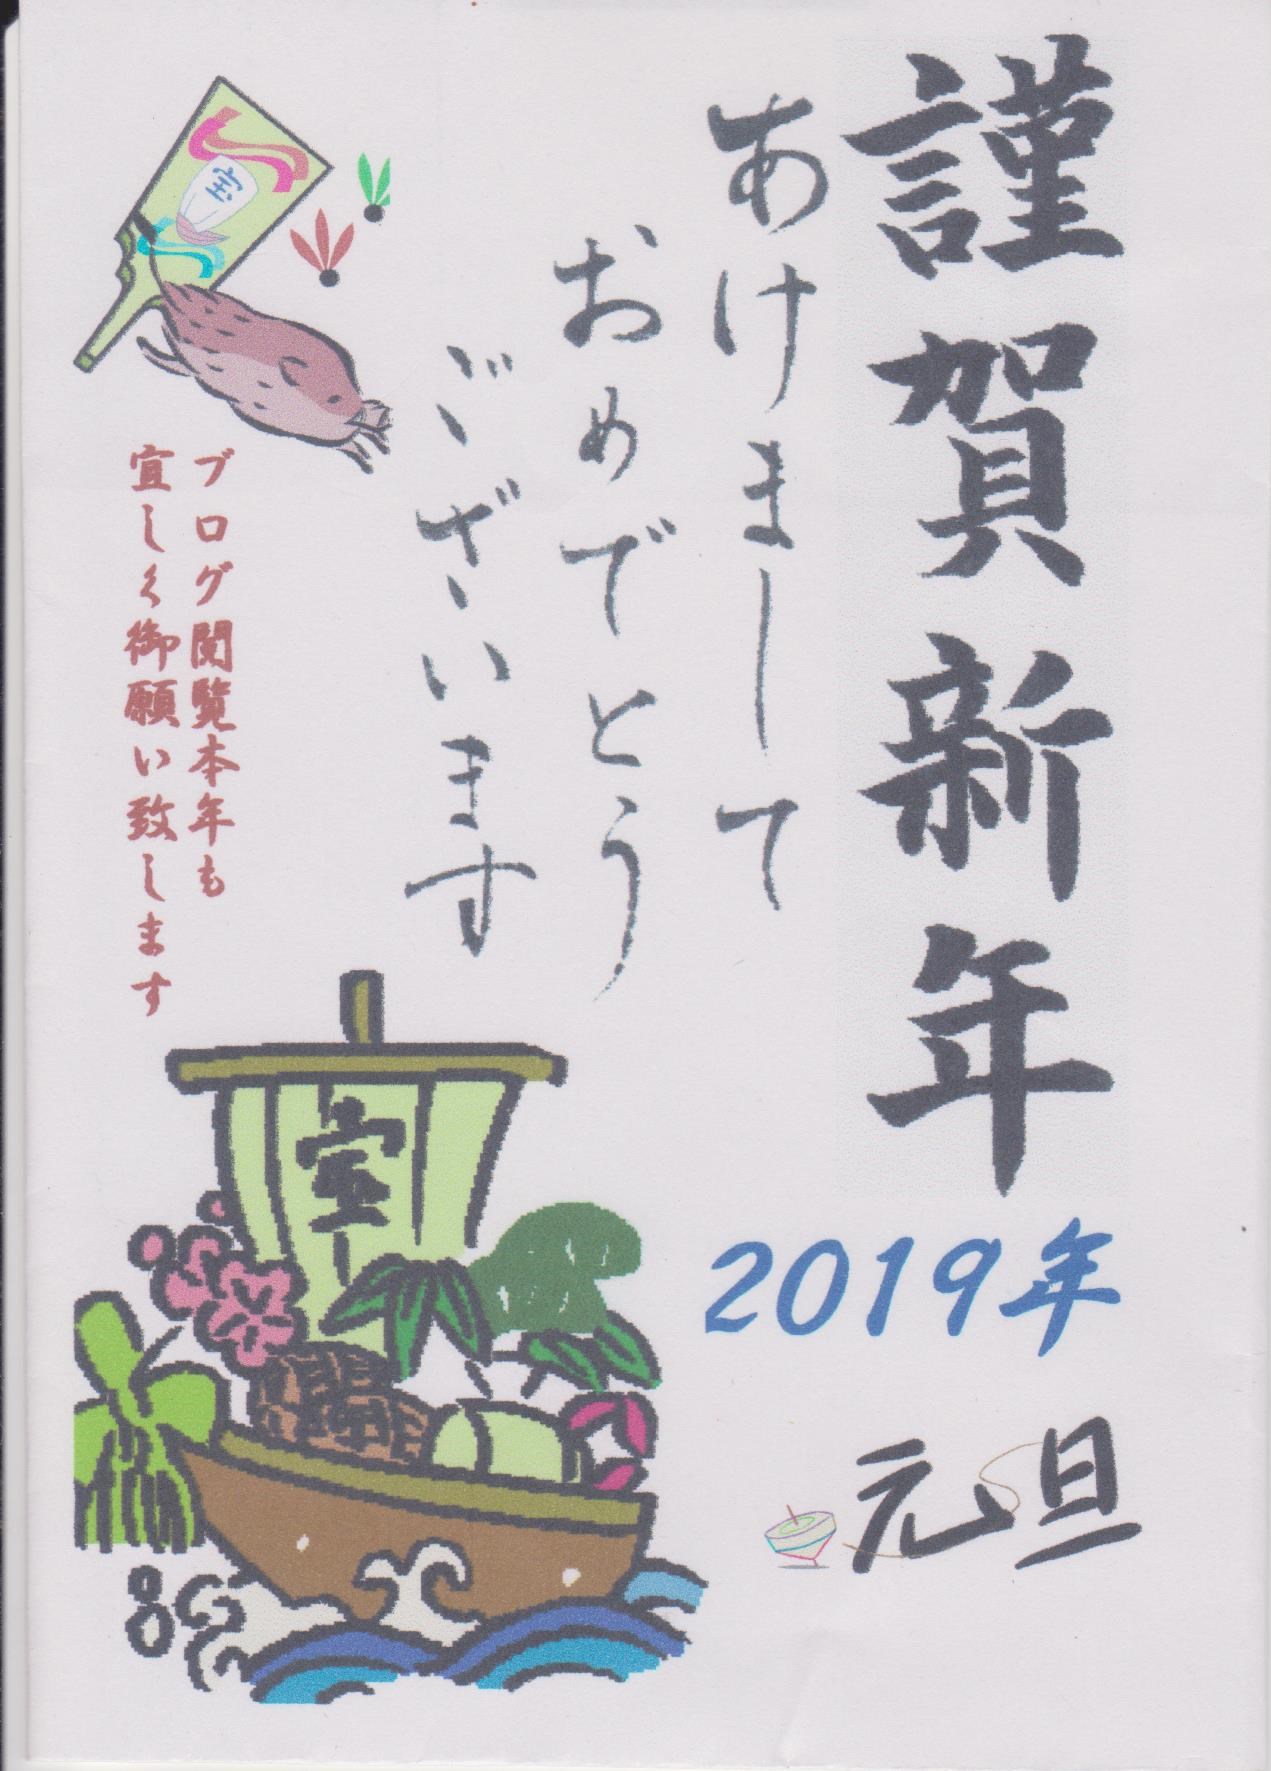 謹賀新年
あけまして
おめでとう
ございます
2019年
元旦
宝
ブログ閲覧本年も
宜しく御願い致します
宝